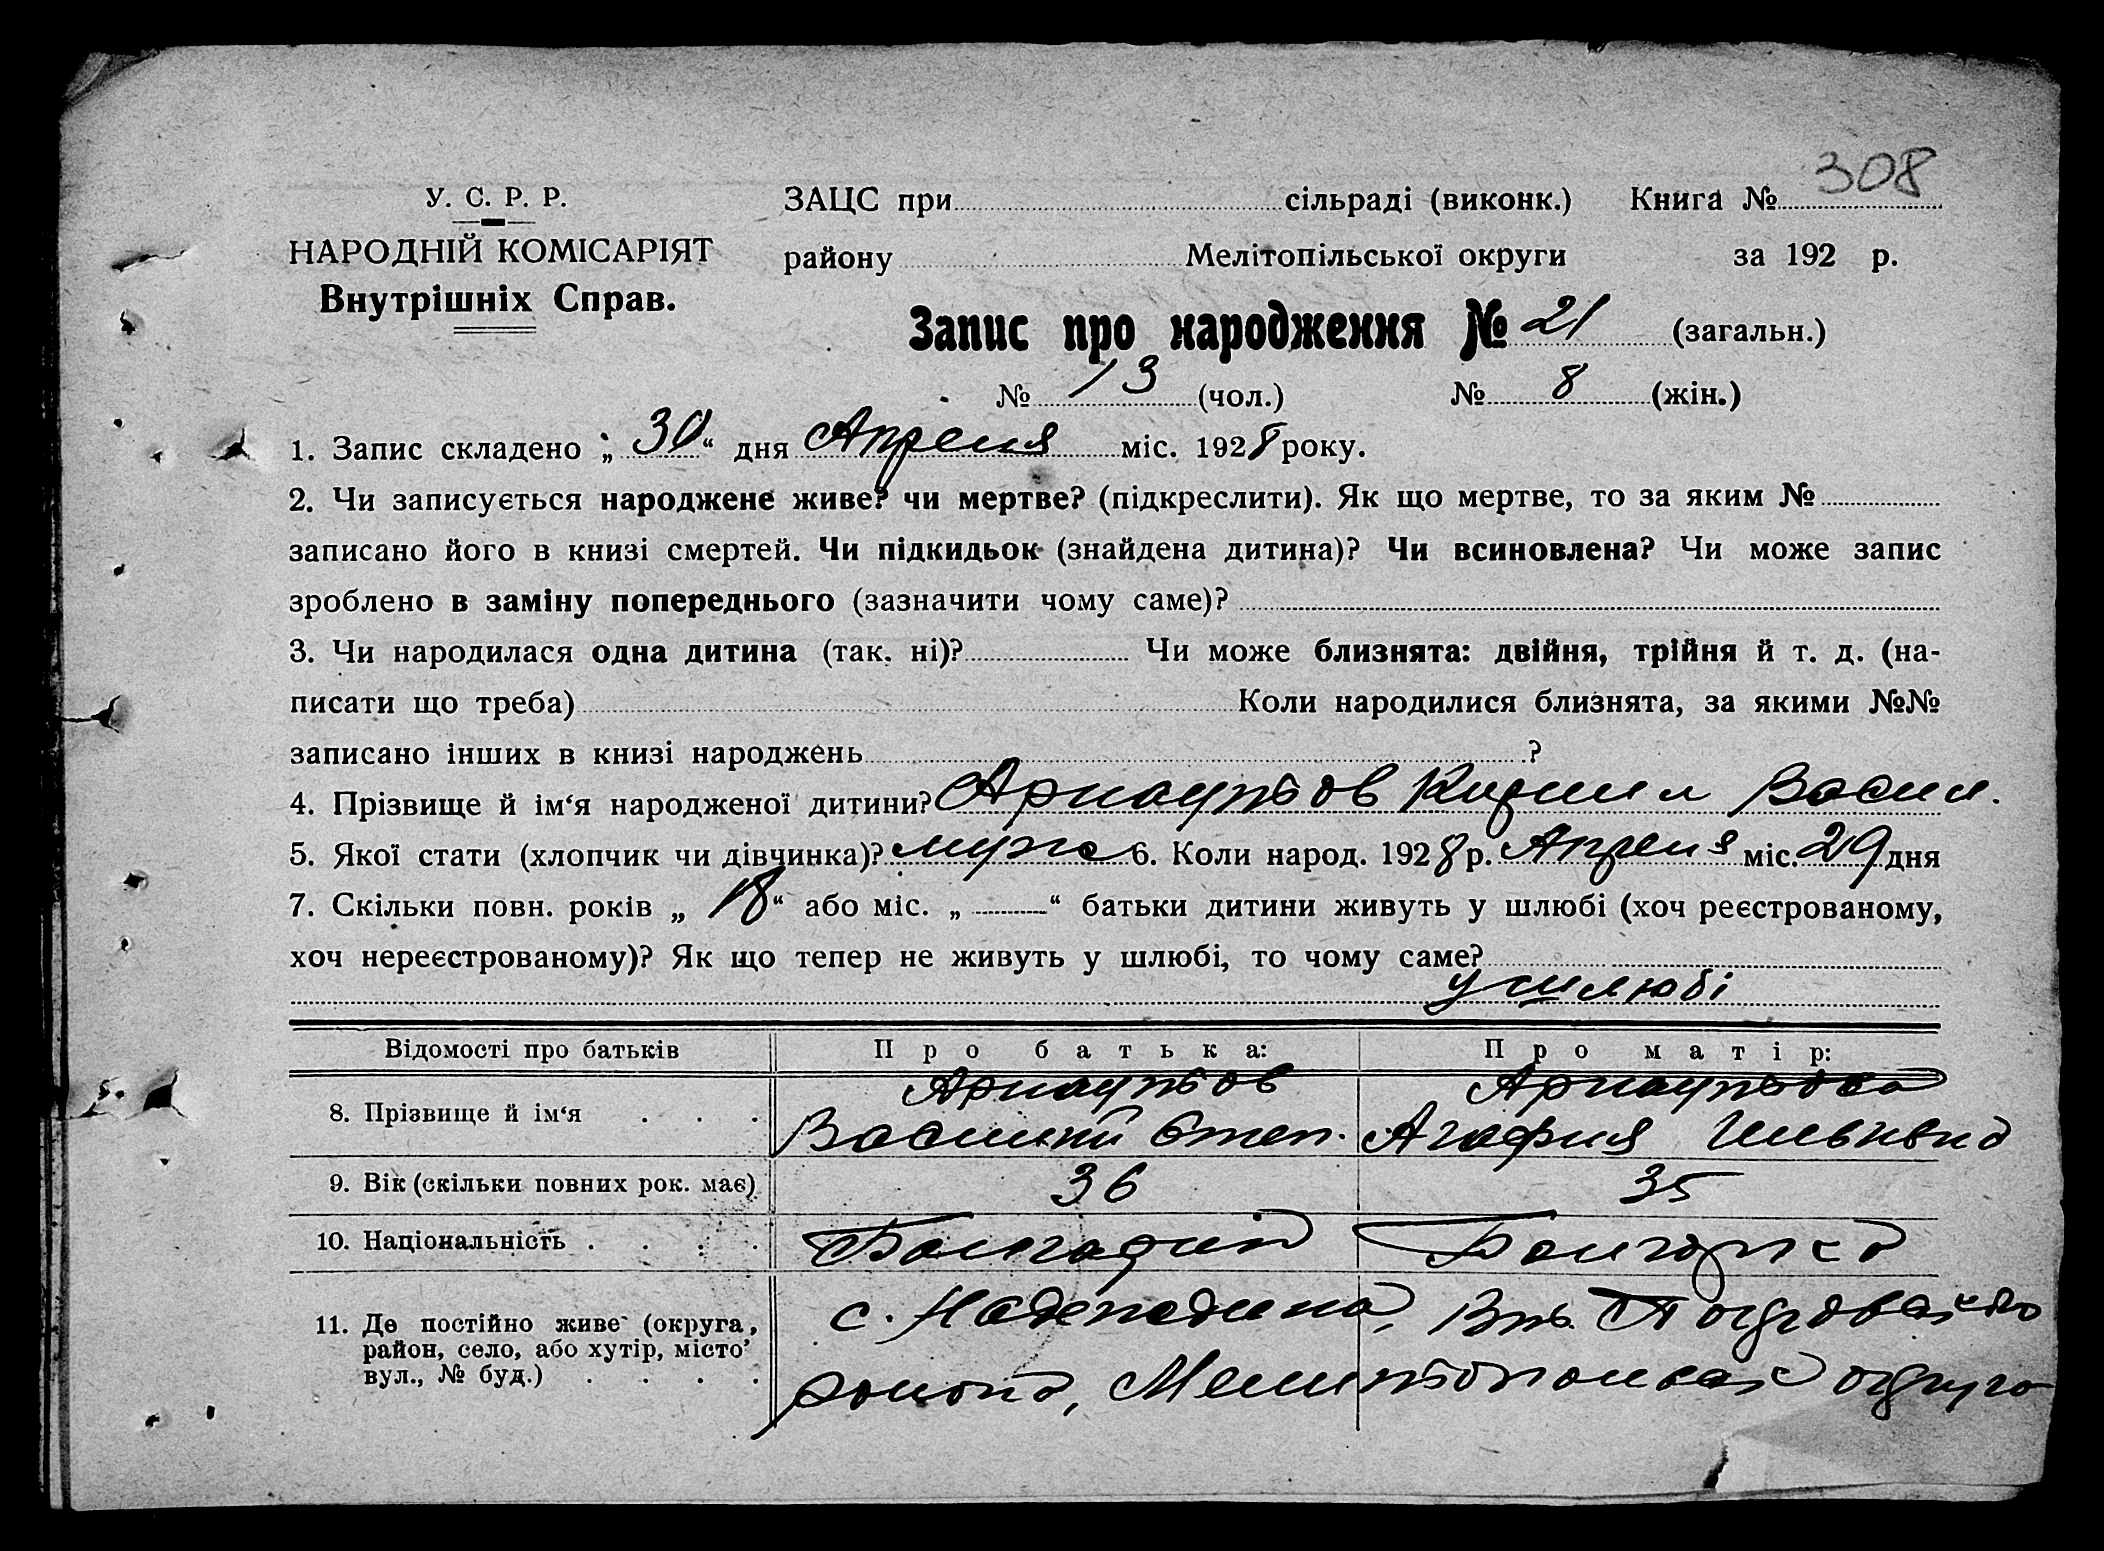 308
У. С. Р. Р. ЗАЦС при сільраді (виконк.) Книга №
НАРОДНІЙ КОМІСАРІЯТ району Мелітопільської округи за 192 р.
Внутрішніх Справ.
Запис про народження № 21 (загальн.)
№ 13 (чол.) № 8 (жін.)
1. Запис складено „ 30 “ дня Апреля міс. 1928 року.
2. Чи записується народжене живе? чи мертве? (підкреслити). Як що мертве, то за яким №
записано його в книзі смертей. Чи підкидьок (знайдена дитина)? Чи всиновлена? Чи може запис
зроблено в заміну попереднього (зазначити чому саме)?
3. Чи народилася одна дитина (так, ні)? Чи може близнята: двійня, трійня й т. д. (на-
писати що треба) Коли народилися близнята, за якими №№
записано інших в книзі народжень ?
4. Прізвище й ім‘я народженої дитини? Арнаутов Кирилл Васил.
5. Якої стати (хлопчик чи дівчинка)? муж 6. Коли народ. 1928 р. Апреля міс. 29 дня
7. Скільки повн. років „ 18 “ або міс. „ — “ батьки дитини живуть у шлюбі (хоч реєстрованому,
хоч нереєстрованому)? Як що тепер не живуть у шлюбі, то чому саме?
у шлюбі
Відомості про батьків Про батька: Про матір:
Арнаутов Арнаутова
8. Прізвище й ім‘я . . . Василий Степ. Агафия
9. Вік (скільки повних рок. має) 36 35
10. Національність . . . . Болгарин Болгарка
11. Де постійно живе (округа, с.
район, село, або хутір, місто
вул., № буд.) . . . . Мелитопольская округа